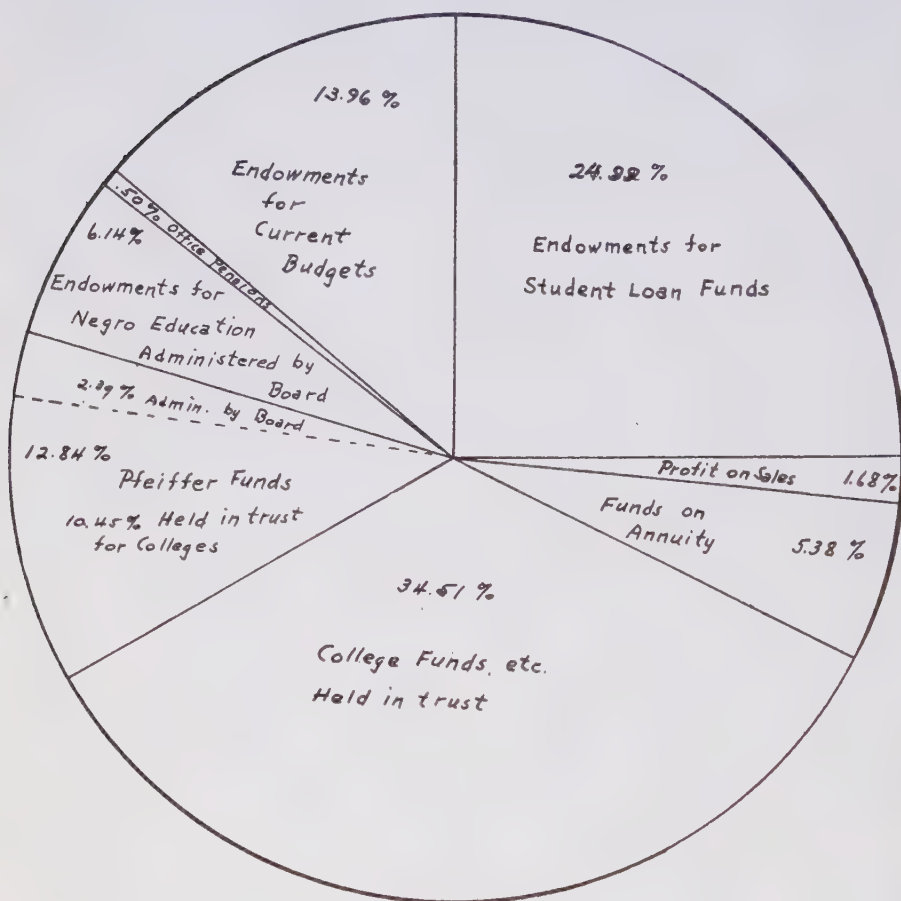 13.96 %
Endowments
for
Current
Budgets
24.99 %
Endowments for
Student Loan Funds
.50% Office Pensions
6.14%
Endowments for
Negro Education
Administered by
Board
2.39% Admin. by Board
12.84%
Pfeiffer Funds
10.45% Held in trust
for Colleges
Profit on Sales 1.68%
Funds on
Annuity 5.38 %
34.51 %
College Funds, etc.
Held in trust